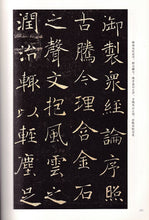 御製眾經論序照
古騰今理含金石
之聲文抱風雲之
潤治輒以輕塵足